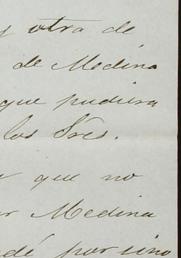 y otra de
de Medina
que pudiera
los Sres.
que no
Medina
por uno